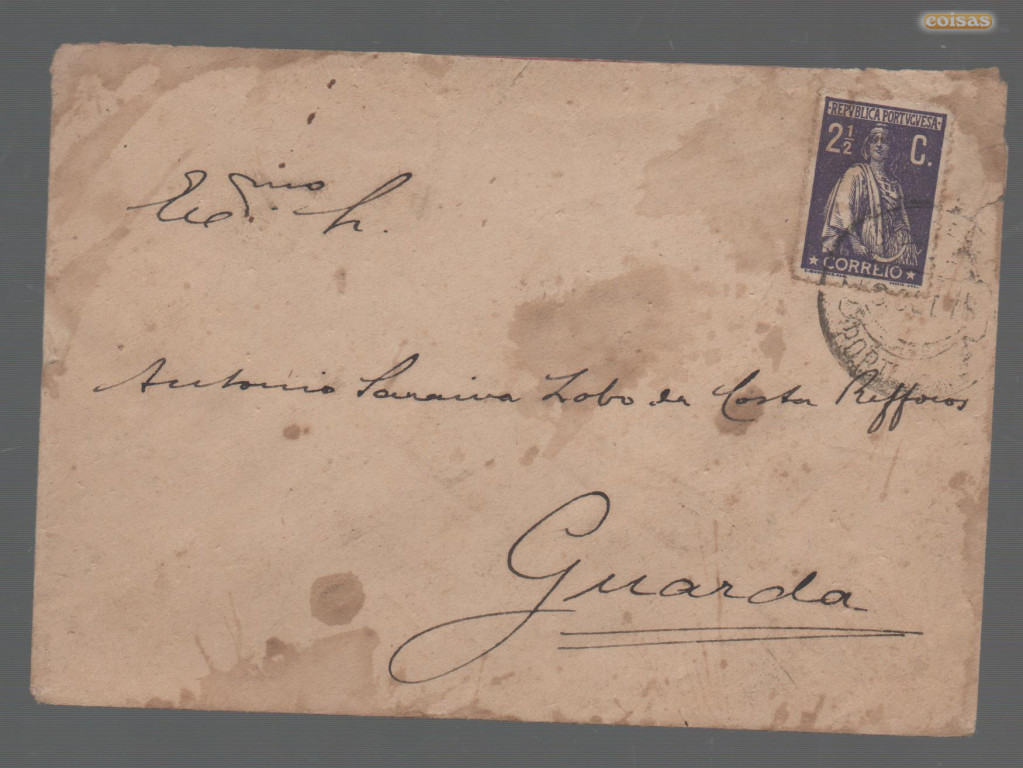 coisas
REPVBLICA PORTVGVESA
2½ C.
CORREIO
Exmo Sr.
Antonio Saraiva Lobo da Costa Reffoios
Guarda